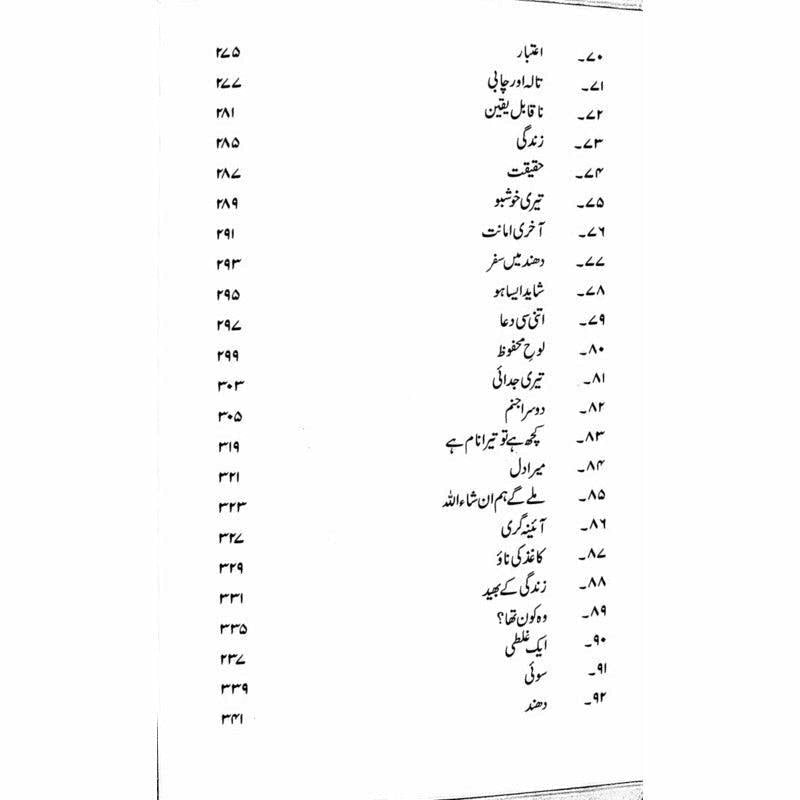 ۷۰۔ اعتبار ۲۷۵
۷۱۔ تالہ اور چابی ۲۷۷
۷۲۔ ناقابل یقین ۲۸۱
۷۳۔ زندگی ۲۸۵
۷۴۔ حقیقت ۲۸۷
۷۵۔ تیری خوشبو ۲۸۹
۷۶۔ آخری امانت ۲۹۱
۷۷۔ دھند میں سفر ۲۹۳
۷۸۔ شاید ایسا ہو ۲۹۵
۷۹۔ اتنی سی دعا ۲۹۷
۸۰۔ لوحِ محفوظ ۲۹۹
۸۱۔ تیری جدائی ۳۰۳
۸۲۔ دوسرا جنم ۳۰۵
۸۳۔ کچھ ہے تو تیرا نام ہے ۳۱۹
۸۴۔ میرا دل ۳۲۱
۸۵۔ ملے گے ہم ان شاء اللہ ۳۲۳
۸۶۔ آئینہ گری ۳۲۷
۸۷۔ کاغذ کی ناؤ ۳۲۹
۸۸۔ زندگی کے بھید ۳۳۱
۸۹۔ وہ کون تھا؟ ۳۳۵
۹۰۔ ایک غلطی ۲۳۷
۹۱۔ سوئی ۳۳۹
۹۲۔ دھند ۳۴۱